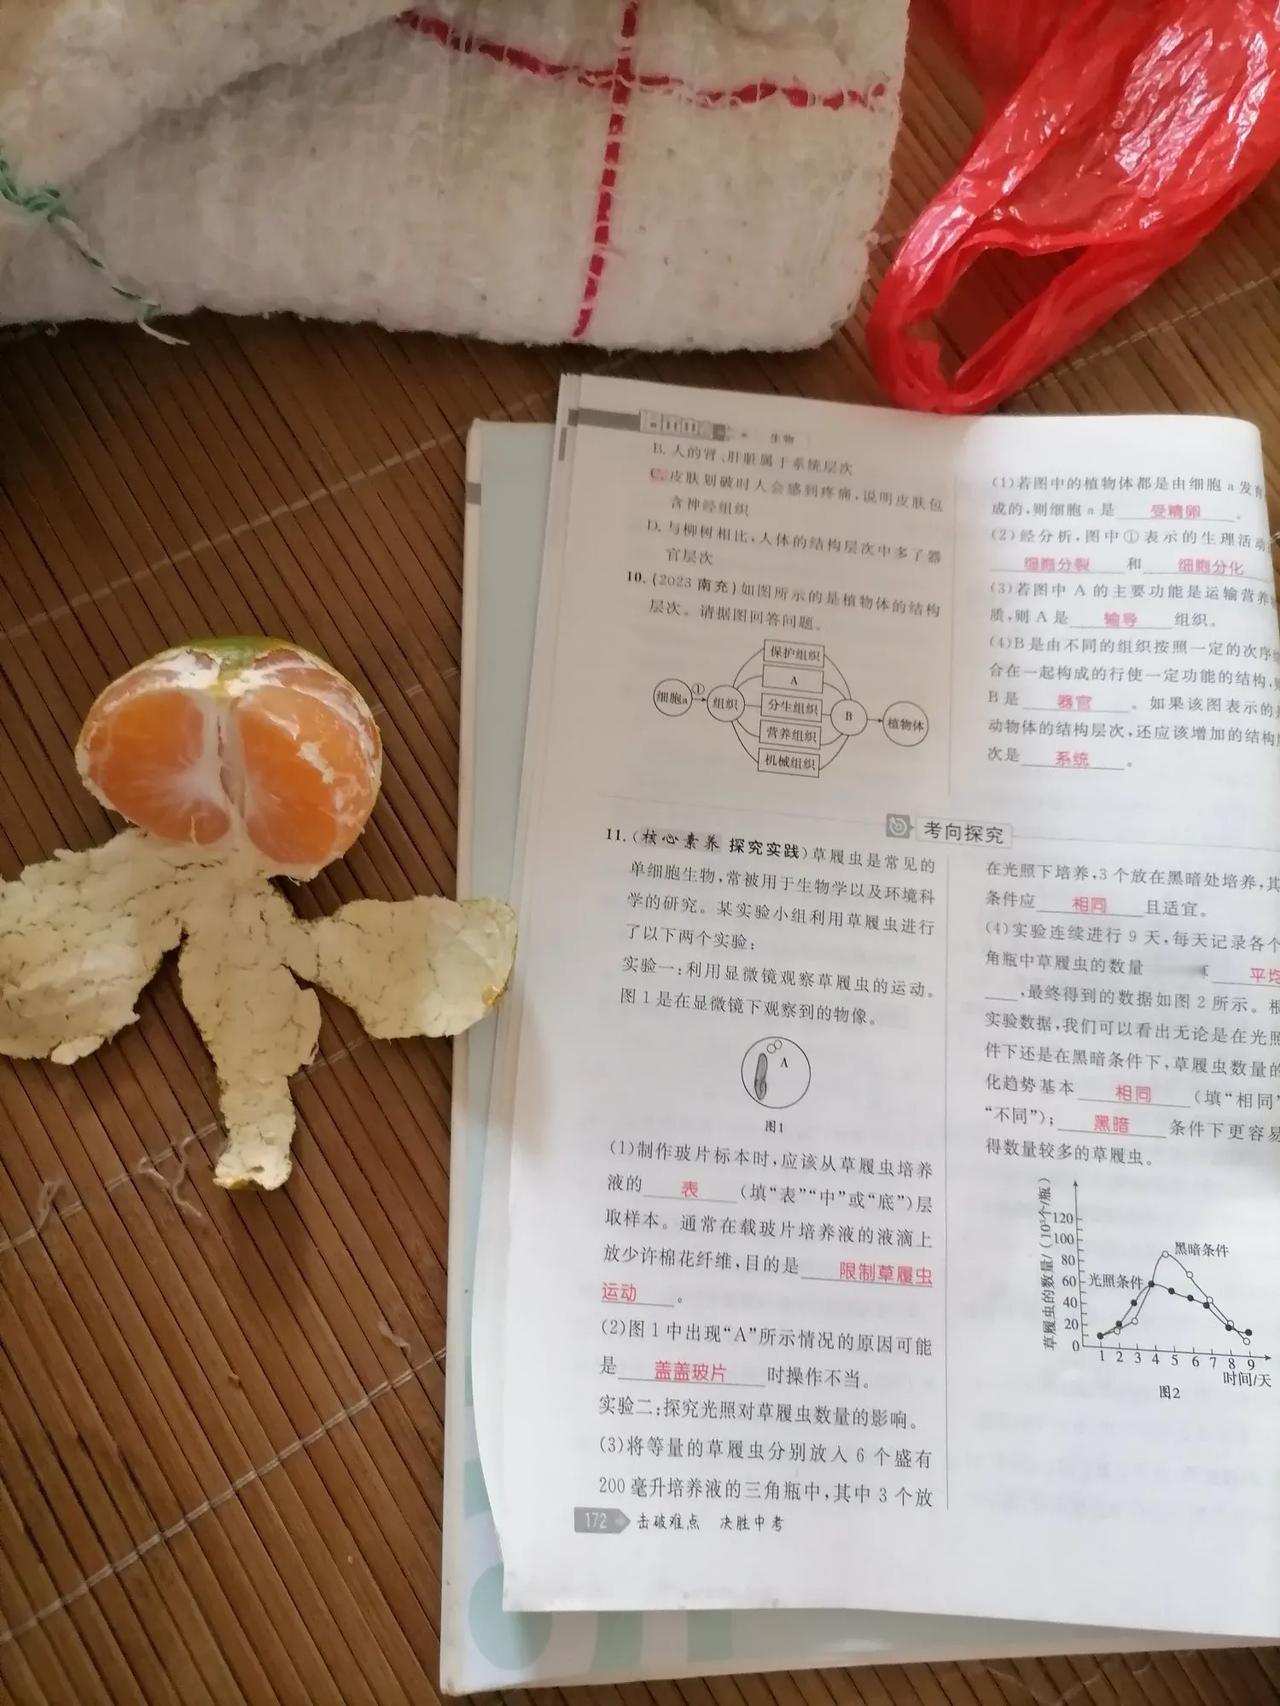 生物
B. 人的肾、肝脏属于系统层次
C. 皮肤划破时人会感到疼痛,说明皮肤包
含神经组织
D. 与柳树相比,人体的结构层次中多了器
官层次
10. (2023 南充)如图所示的是植物体的结构
层次。请据图回答问题。
保护组织
A
细胞a ① 组织 分生组织 B 植物体
营养组织
机械组织
(1)若图中的植物体都是由细胞 a 发育
成的,则细胞 a 是 受精卵 。
(2)经分析,图中①表示的生理活动
细胞分裂 和 细胞分化
(3)若图中 A 的主要功能是运输营养
质,则 A 是 输导 组织。
(4)B 是由不同的组织按照一定的次序
合在一起构成的行使一定功能的结构,
B 是 器官 。如果该图表示的
动物体的结构层次,还应该增加的结构
次是 系统 。
考向探究
11. (核心素养 探究实践)草履虫是常见的
单细胞生物,常被用于生物学以及环境科
学的研究。某实验小组利用草履虫进行
了以下两个实验:
实验一:利用显微镜观察草履虫的运动。
图 1 是在显微镜下观察到的物像。
A
图1
(1)制作玻片标本时,应该从草履虫培养
液的 表 (填“表”“中”或“底”)层
取样本。通常在载玻片培养液的液滴上
放少许棉花纤维,目的是 限制草履虫
运动 。
(2)图 1 中出现“A”所示情况的原因可能
是 盖盖玻片 时操作不当。
实验二:探究光照对草履虫数量的影响。
(3)将等量的草履虫分别放入 6 个盛有
200 毫升培养液的三角瓶中,其中 3 个放
在光照下培养,3 个放在黑暗处培养,其
条件应 相同 且适宜。
(4)实验连续进行 9 天,每天记录各个
角瓶中草履虫的数量 平均
,最终得到的数据如图 2 所示。根
实验数据,我们可以看出无论是在光照
件下还是在黑暗条件下,草履虫数量的
化趋势基本 相同 (填“相同”
“不同”); 黑暗 条件下更容易
得数量较多的草履虫。
草履虫的数量/(10³个/瓶)
120
100
80
60
40
20
0
黑暗条件
光照条件
1 2 3 4 5 6 7 8 9
时间/天
图2
172 击破难点 决胜中考